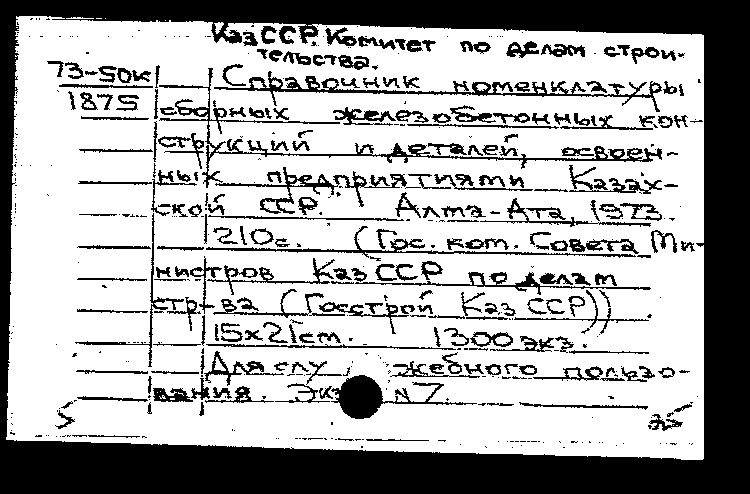 КазССР. Комитет по делам строи-
тельства.
73-50к Справочник номенклатуры
1875 сборных железобетонных кон-
струкций и деталей, освоен-
ных предприятиями Казах-
ской ССР. Алма-Ата, 1973.
210с. (Гос. ком. Совета Ми-
нистров КазССР по делам
стр-ва (Госстрой КазССР))
15х21см. 1300 экз.
Для служебного пользо-
вания. Экз N 7.